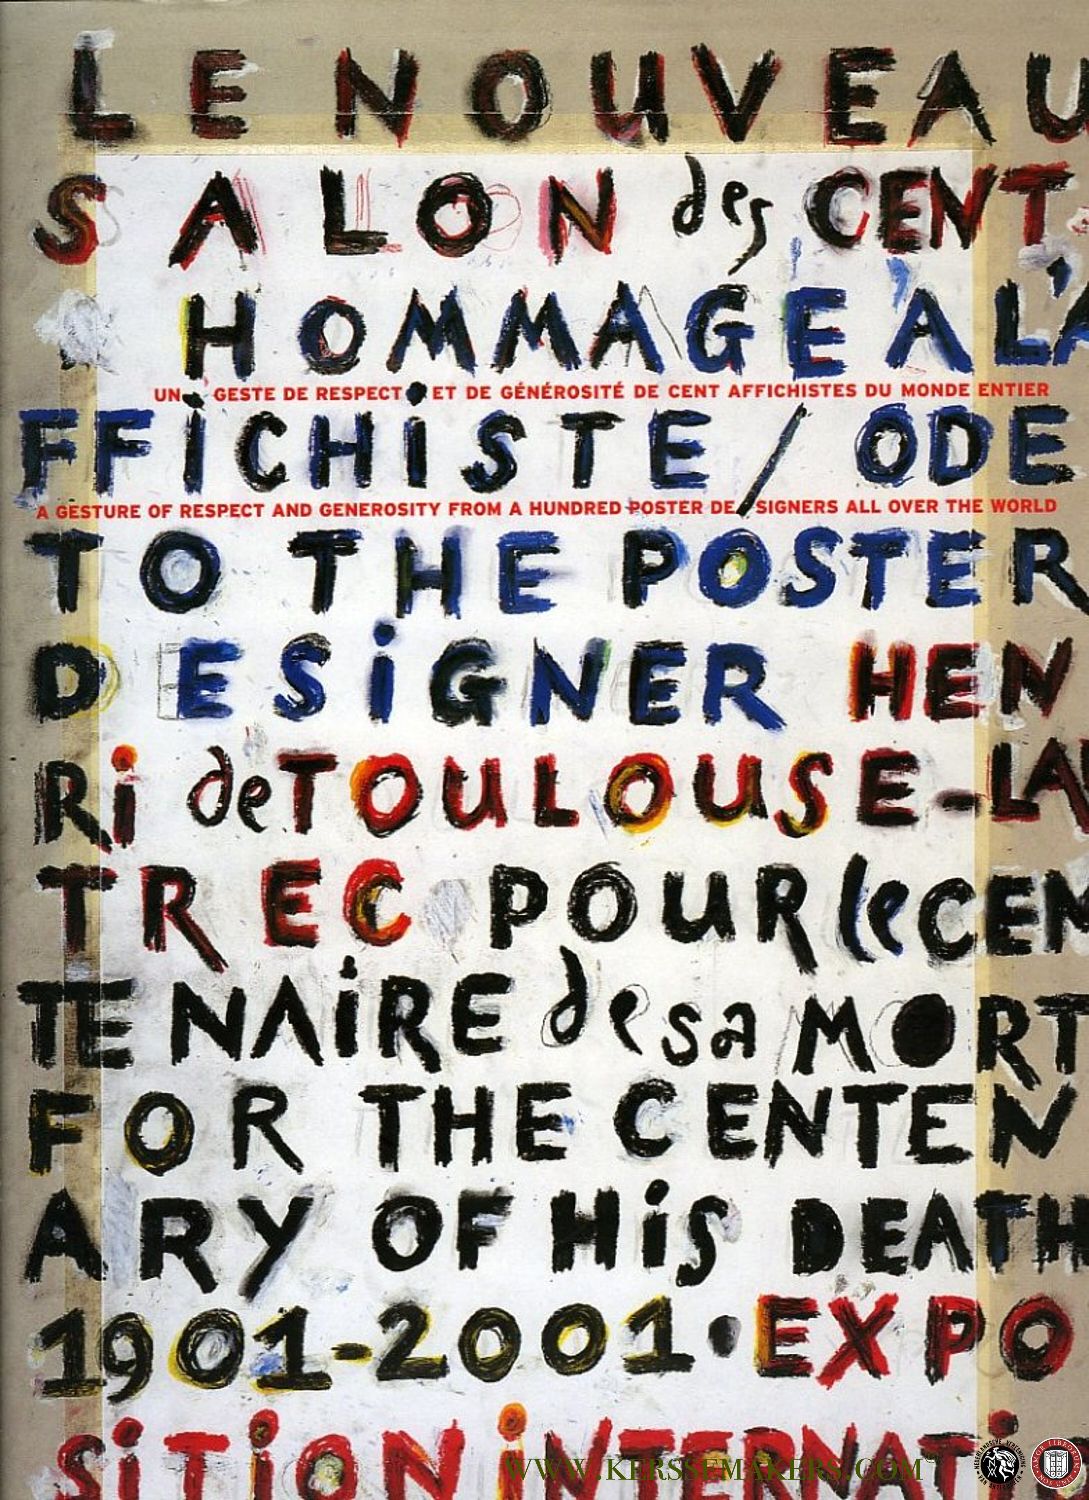 LE NOUVEAU
SALON des CENT.
HOMMAGE À L'A
UN GESTE DE RESPECT ET DE GÉNÉROSITÉ DE CENT AFFICHISTES DU MONDE ENTIER
FFiCHiSTE / ODE
A GESTURE OF RESPECT AND GENEROSITY FROM A HUNDRED POSTER DESIGNERS ALL OVER THE WORLD
TO THE POSTER
DESiGNER HEN
Ri de TOULOUSE-LAU
TREC POUR le CEN
TENAiRE de sa MORT
FOR THE CENTEN
ARY OF HiS DEATH
1901-2001·EXPO
SiTiON iNTERNATi
WWW.KERSSEMAKERS.COM